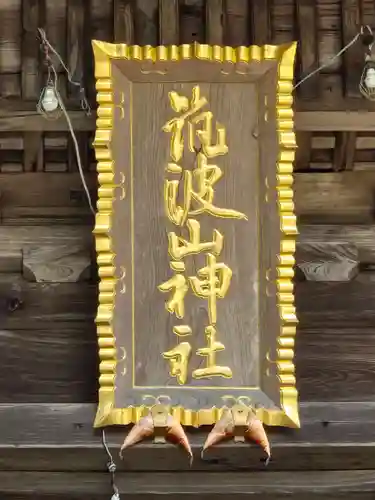 筑波山神社